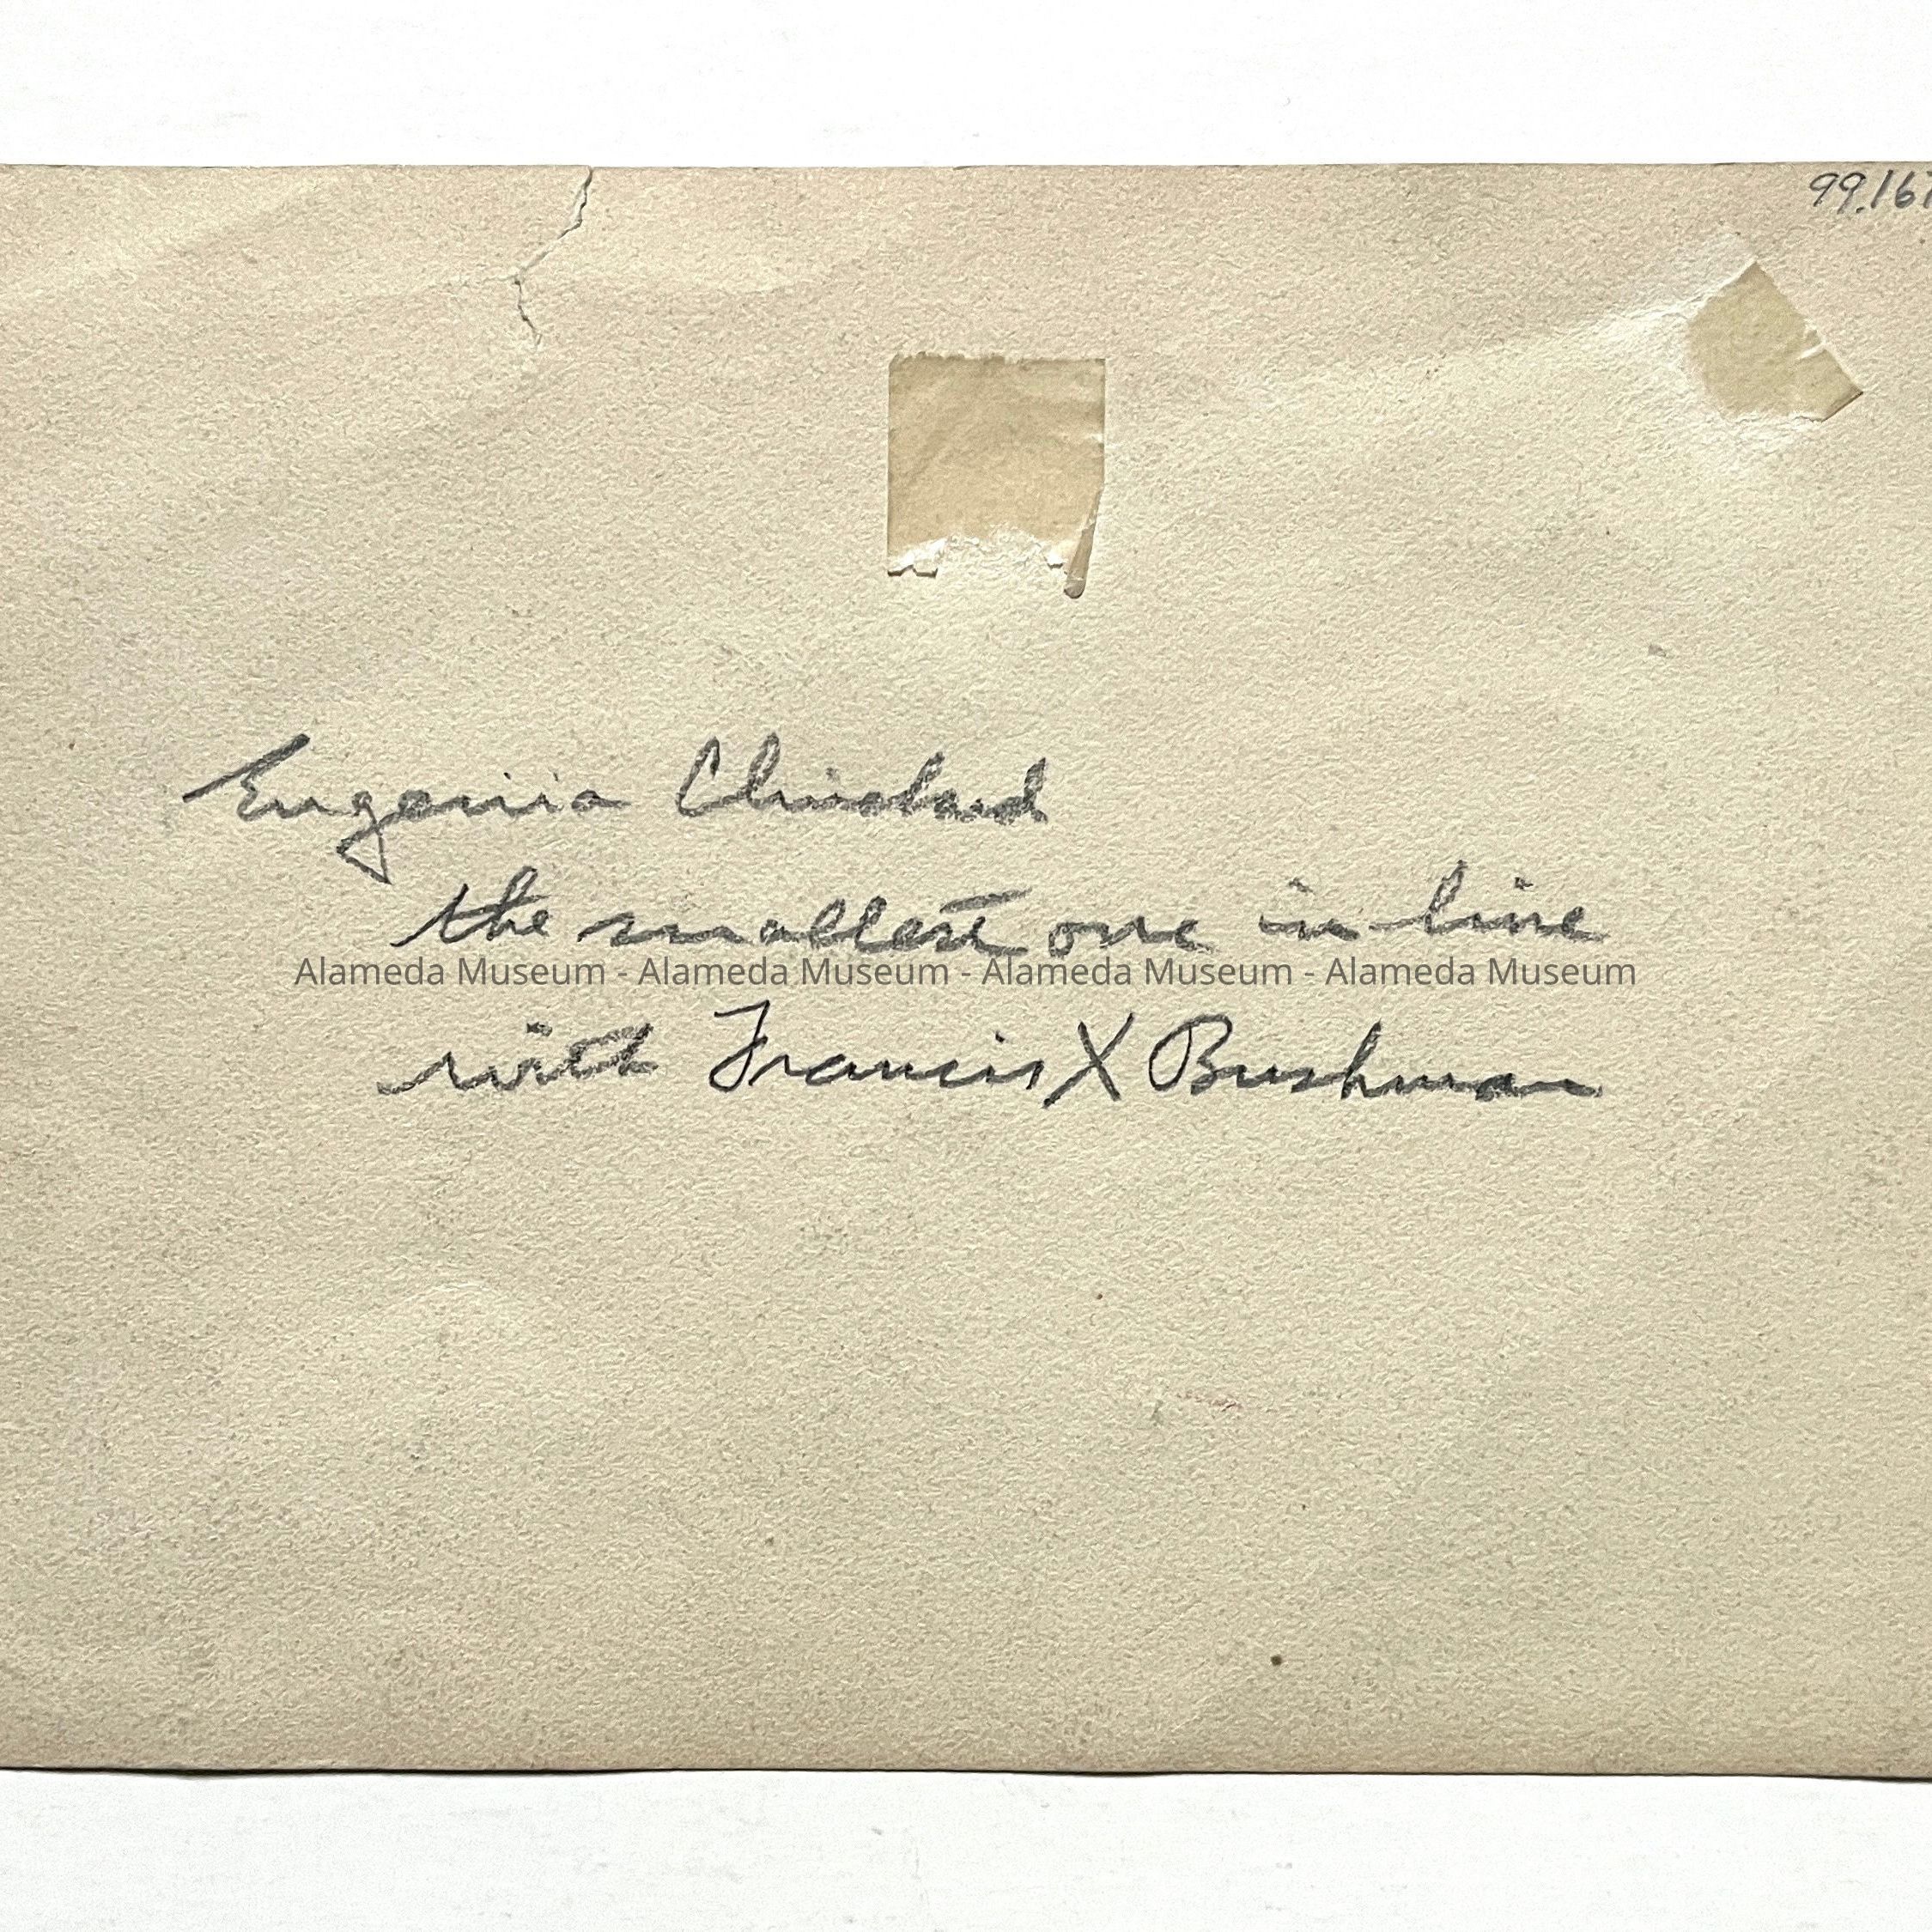 99.167
Eugenia
the smallest one in line
Alameda Museum - Alameda Museum - Alameda Museum - Alameda Museum
with Francis X Bushman